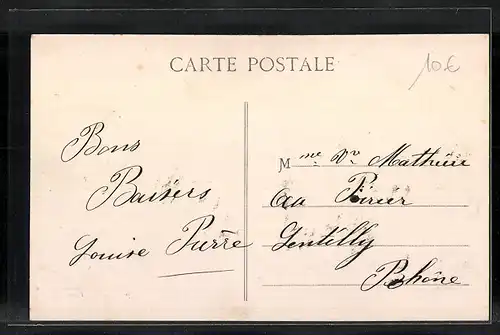 CARTE POSTALE
10 €
Bons
Baisers
Louise Pierre
Mme Vve Mathieu
au Poirier
Gentilly
Rhône